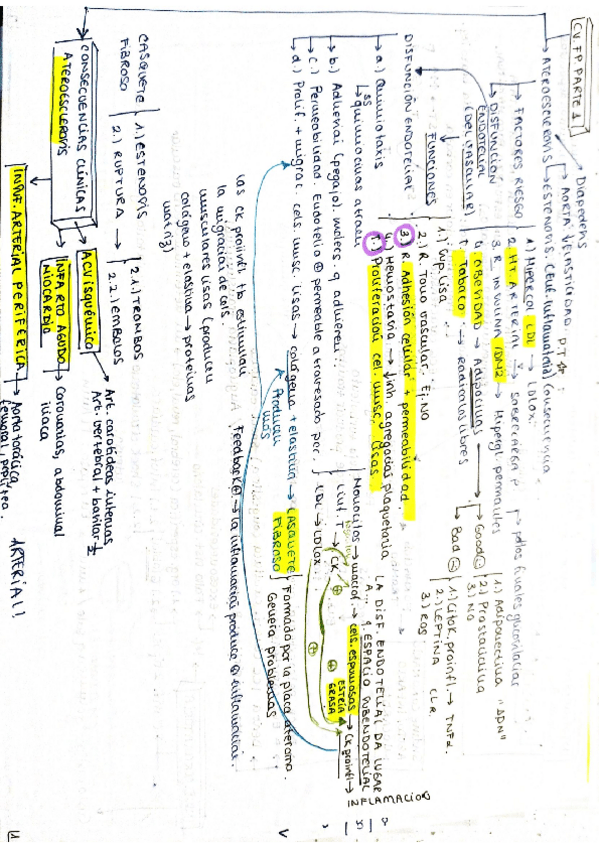 CV. FP PARTE 1
Diapedesis
AORTA ↓ ELASTICIDAD. P.T
ATEROESCLEROSIS → ESTENOSIS. (Enf. inflamatoria) (consecuencia
FACTORES RIESGO
1.) HIPERCOL LDL → LDLox.
2. HT. ARTERIAL → SOBRECARGA P
3. R. INSULINA /DM2 → Hiperg
4. OBESIDAD → Adipocinas
5. Tabaco → Radicales libres
Good
1.) Adiponectina "SDN"
2.) Prostaciclina
3.) NO
Bad
1.) Citok. proinfl. → TNFα.
2.) LEPTINA CLR
3.) ROS
DISFUNCIÓN
ENDOTELIAL
(DEL VASCULAR)
FUNCIONES
1.) Sup. lisa
2.) R. Tono vascular. Ej. NO
3.) R. Adhesión celular + permeabilidad.
4.) Hemostasia → Inh. agregación plaquetaria
5.) Proliferación cel. musc. lisas.
DISFUNCIÓN ENDOTELIAL
LA DISF. ENDOTELIAL DA LUGAR
A... ESPACIO SUBENDOTELIAL
a.) Quimiotaxis
quimiocinas atraen
b.) Adhesión (pegajo). molecs. q adhieren:
c.) Permeabilidad. Endotelio ⊕ permeable atravesado por:
Monocitos → macróf. → céls. espumosas → CK proinfl → INFLAMACIÓN
ESTRÍA
GRASA
Linf. T → CK
LDL → LDLox
d.) Prolif. + migrac. cels. musc lisas → colágeno + elastina → CASQUETE
FIBROSO
Producen
más
Formado por la placa ateroma.
Genera problemas
Feedback ⊕ → la inflamación produce ⊕ inflamación.
las CK proinfl tb estimulan
la migración de cels.
musculares lisas (producen
colágeno + elastina → proteínas
matriz)
CASQUETE
FIBROSO
1.) ESTENOSIS
2.) RUPTURA →
2.1) TROMBOS
2.2.) EMBOLOS
CONSECUENCIAS CLÍNICAS
ATEROESCLEROSIS
ACV isquémico → Art. carótidas internas
Art. vertebral + basilar
INFARTO AGUDO
MIOCARDIO → Coronarias, abdominal
iliaca
INSUF. ARTERIAL PERIFÉRICA → Aorta torácica
femoral, poplítea.
ARTERIAL!
1